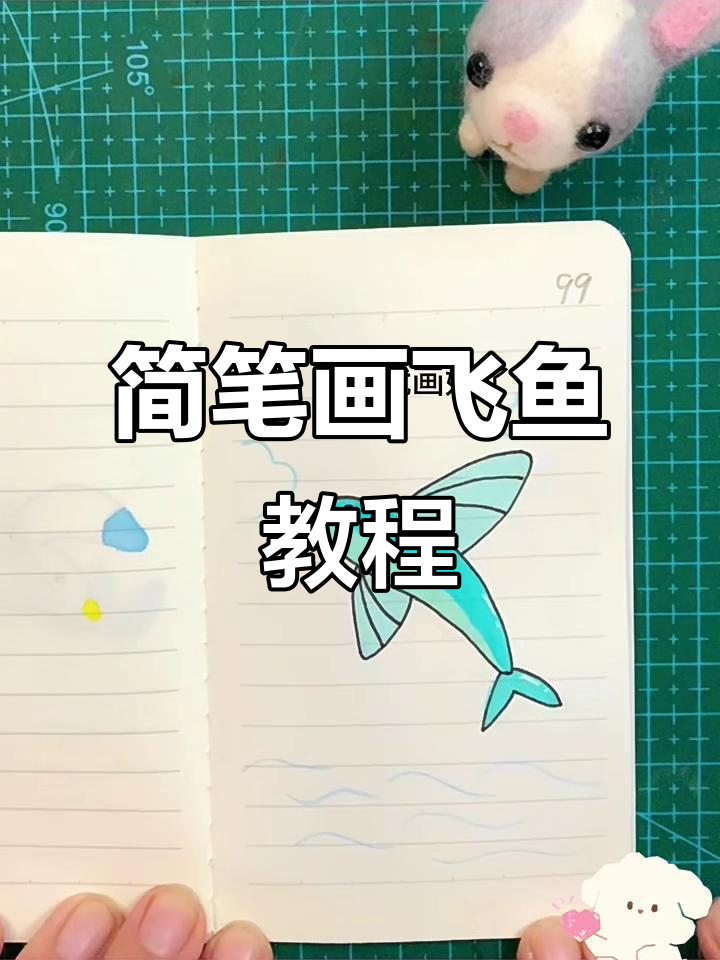 105°
90
99
简笔画飞鱼
教程